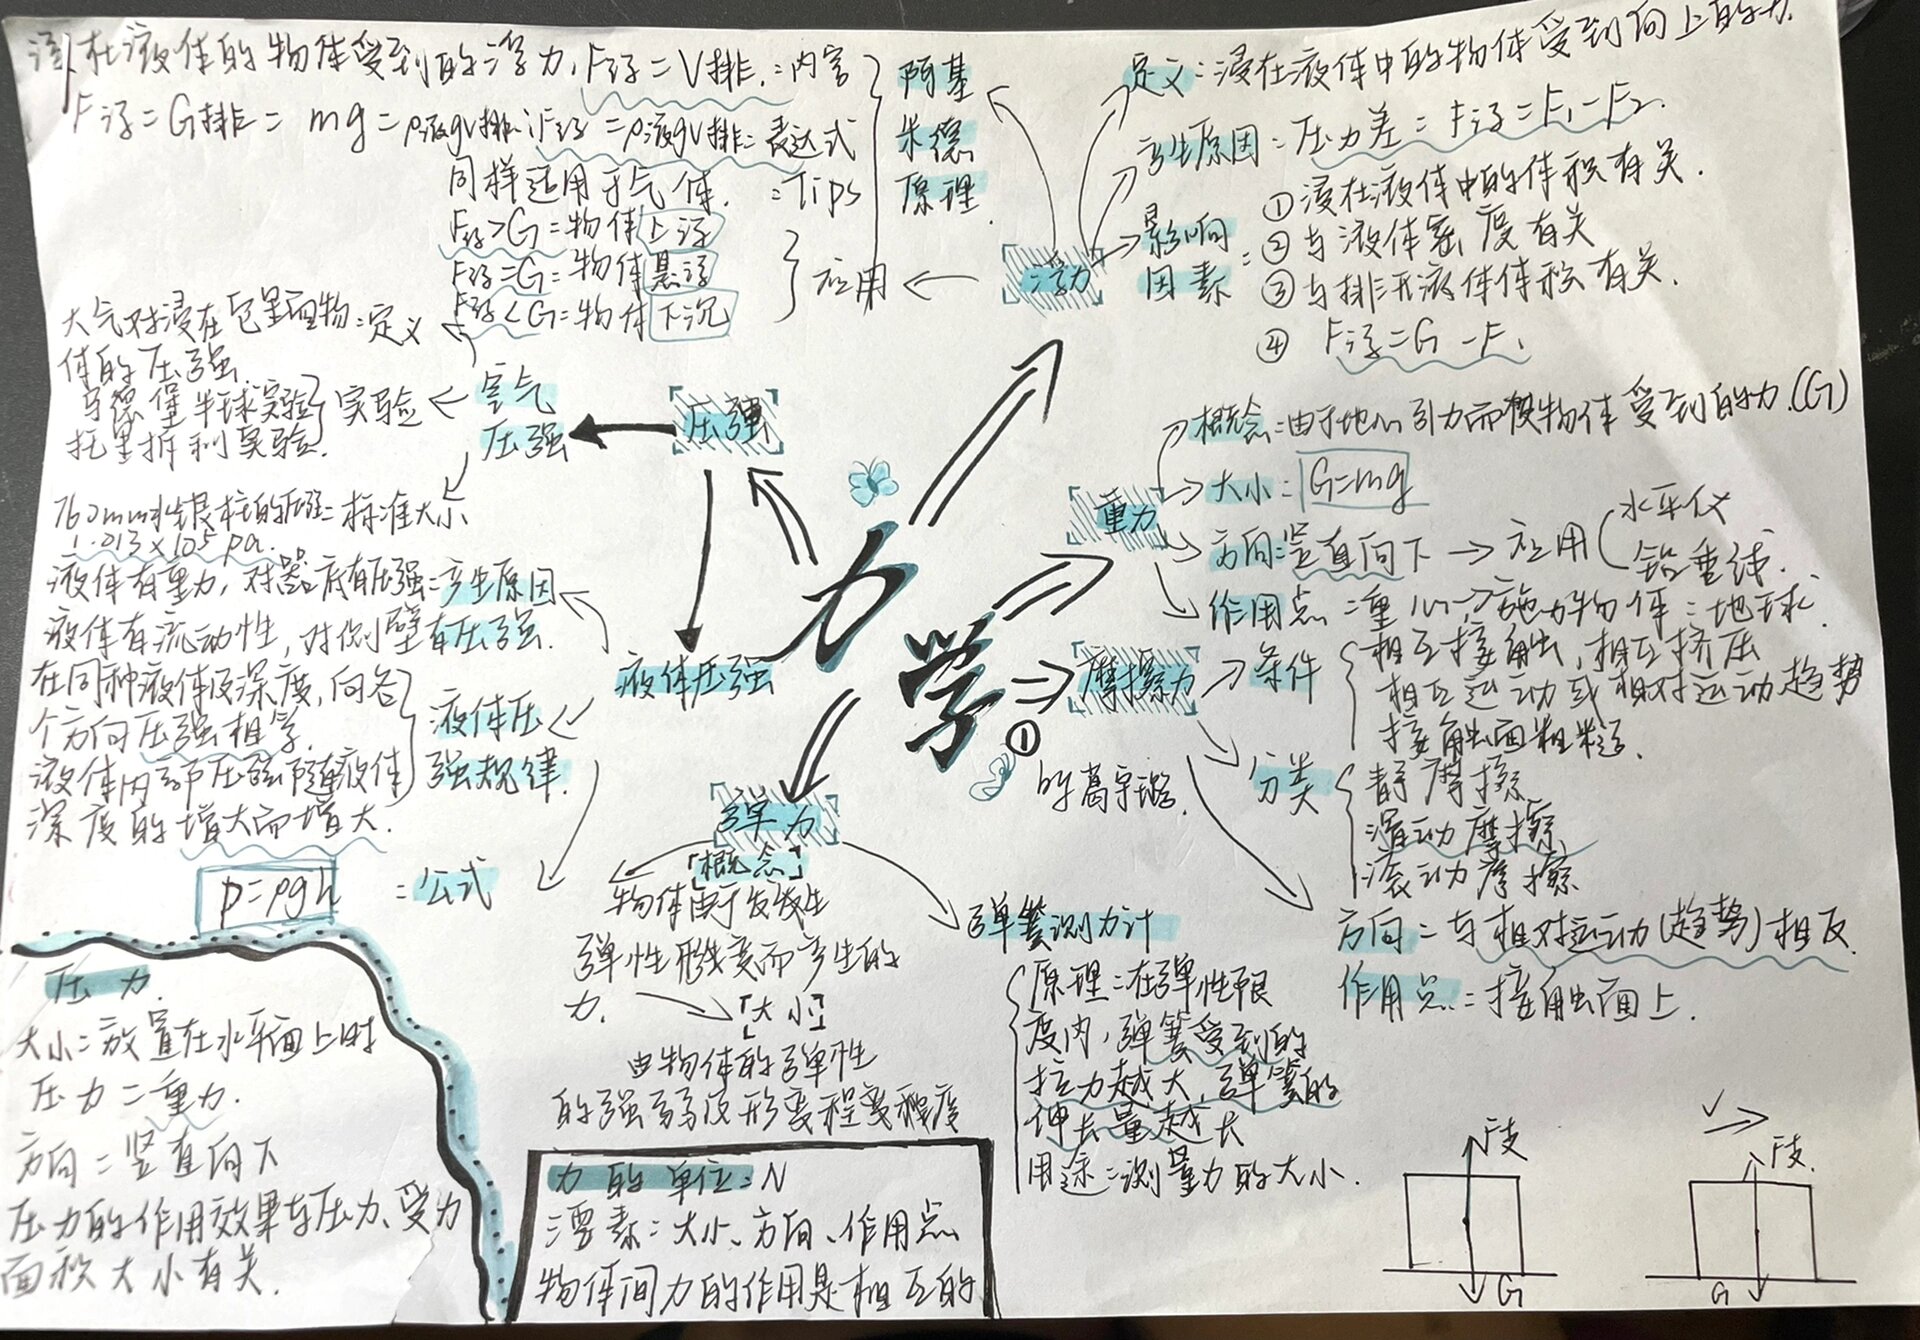 浸在液体的物体受到的浮力,F浮=V排.=内容
F浮=G排=mg=ρ液gV排;F浮=ρ液gV排=表达式
同样适用于气体.=Tips
阿基
米德
原理.
F浮>G=物体上浮
F浮=G=物体悬浮
F浮<G=物体下沉
应用
浮力
定义:浸在液体中的物体受到向上的力.
产生原因:压力差=F浮=F₁-F₂.
影响
因素=
①浸在液体中的体积有关.
②与液体密度有关
③与排开液体体积有关.
④ F浮=G-F.
大气对浸在包里面物=定义
体的压强
马德堡半球实验
托里拆利实验.
实验
空气
压强
压强
760mm水银柱的压强=标准大小
1.013×10⁵pa.
液体有重力,对器底有压强=产生原因
液体有流动性,对侧壁有压强.
液体压强
在同种液体及深度,向各
个方向压强相等.
液体内部压强随液体
深度的增大而增大.
液体压
强规律.
p=ρgh =公式
力
学
①
的葛宇璐.
重力
概念:由于地心引力而使物体受到的力.(G)
大小:G=mg
方向:竖直向下→应用
水平仪
铅垂线.
作用点=重心→施力物体=地球.
摩擦力
条件
相互接触,相互挤压
相互运动或相对运动趋势
接触面粗糙.
分类
静摩擦
滑动摩擦
滚动摩擦
方向=与相对运动(趋势)相反.
作用点=接触面上.
弹力
「概念」
物体由于发生
弹性形变而产生的
力.
「大小」
由物体的弹性
的强弱及形变程变程度
弹簧测力计
原理=在弹性限
度内,弹簧受到的
拉力越大,弹簧的
伸长量越长
用途=测量力的大小.
压力.
大小=放置在水平面上时
压力=重力.
方向=竖直向下
压力的作用效果与压力、受力
面积大小有关.
力的单位=N
三要素=大小、方向、作用点
物体间力的作用是相互的
F支
G
V
F支.
G